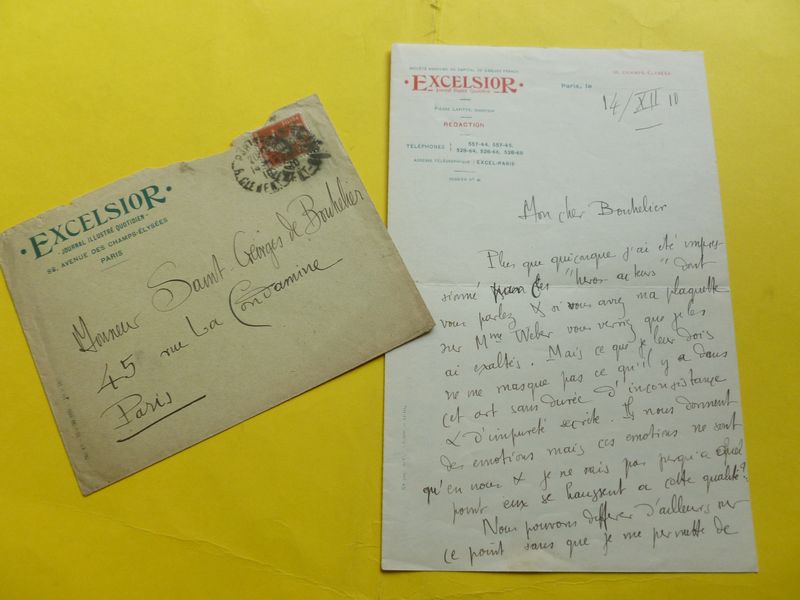 EXCELSIOR
JOURNAL ILLUSTRÉ QUOTIDIEN
88, AVENUE DES CHAMPS-ÉLYSÉES
PARIS
Monsieur Saint-Georges de Bouhelier
45 rue La Condamine
Paris
SOCIÉTÉ ANONYME AU CAPITAL DE FRANCS
EXCELSIOR
Journal Illustré Quotidien
PIERRE LAFITTE, DIRECTEUR
RÉDACTION
TÉLÉPHONES
ADRESSE TÉLÉGRAPHIQUE : EXCEL-PARIS
CHAMPS-ÉLYSÉES
Paris, le
14/XII 10
Mon cher Bouhelier
Plus que quiconque j'ai été impres
sionné ces "heros acteurs" dont
vous parlez & si vous aviez ma plaquette
sur Mme Weber vous verriez que je les
ai exaltés. Mais ce que je leur dois
ne me masque pas ce qu'il y a dans
cet art sans durée d'inconsistance
& d'impureté secrète. Ils nous donnent
des emotions mais ces emotions ne sont
qu'en nous & je ne sais pas jusqu'a quel
point eux se haussent a cette qualité?
Nous pouvons differer d'ailleurs sur
ce point sans que je me permette de